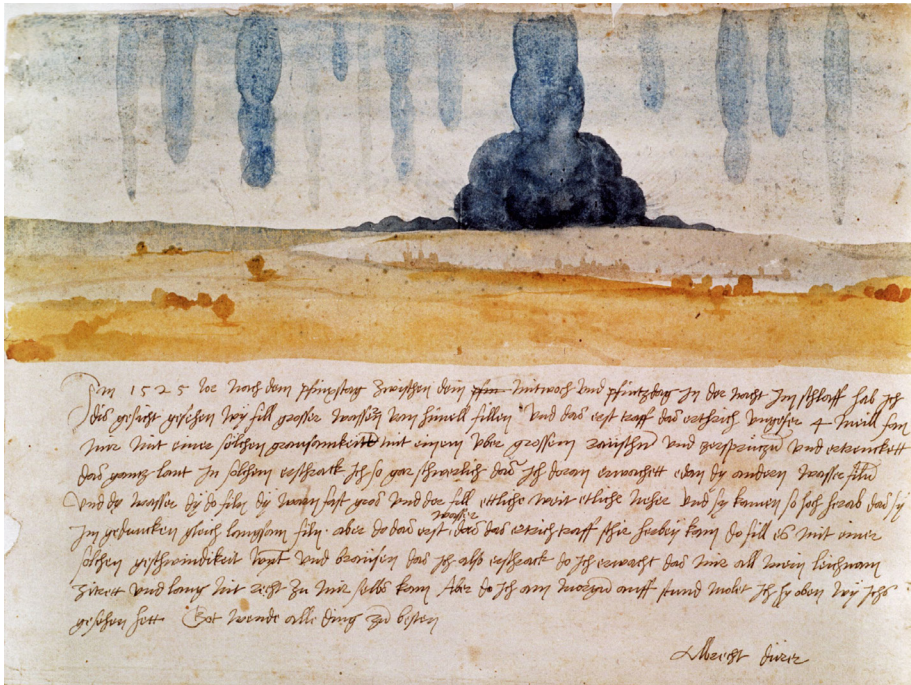 Im 1525 Jor nach dem pfinxstag zwischen dem pfin mitwoch und pfintzdag in der nacht im schlaff hab ich
dis gesicht gesehen wy fill grosser wassern vom himell fillen Und das erst traff das erthrich ungefer 4 meill fan
mir mit einer solchen grausamkeitt mit einem uber grossem raüschn und zersprützn und ertrenckett
das gantz lant In solchem erschrack ich so gar schwerlich das ich doran erwachett edan dy andern wasser filn
Und dy wasser dy do filn dy warn fast gros und der fill ettliche weit etliche neher und sy kamen so hoch herab das sy
im geduncken gleich langsam filn aber do das erst wasser das das ertrich traff schir herbey kam do fill es mit einer
solchen geschwindikeit wynt und braüsen das ich also erschrack do ich erwacht das mir all mein leichnam
zitrett und lang nit recht zu mir selbs kam Aber do ich am morgn auff stund molet ich hy oben wy ichs
gesehen hett Got wende alle ding zu besten
Albrecht dürer